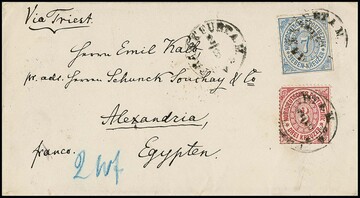 Via Triest.
Herrn Emil Kalb
pr. adr. Herren Schunck Souchay & Co
Alexandria,
franco. Egypten.
2 Wf